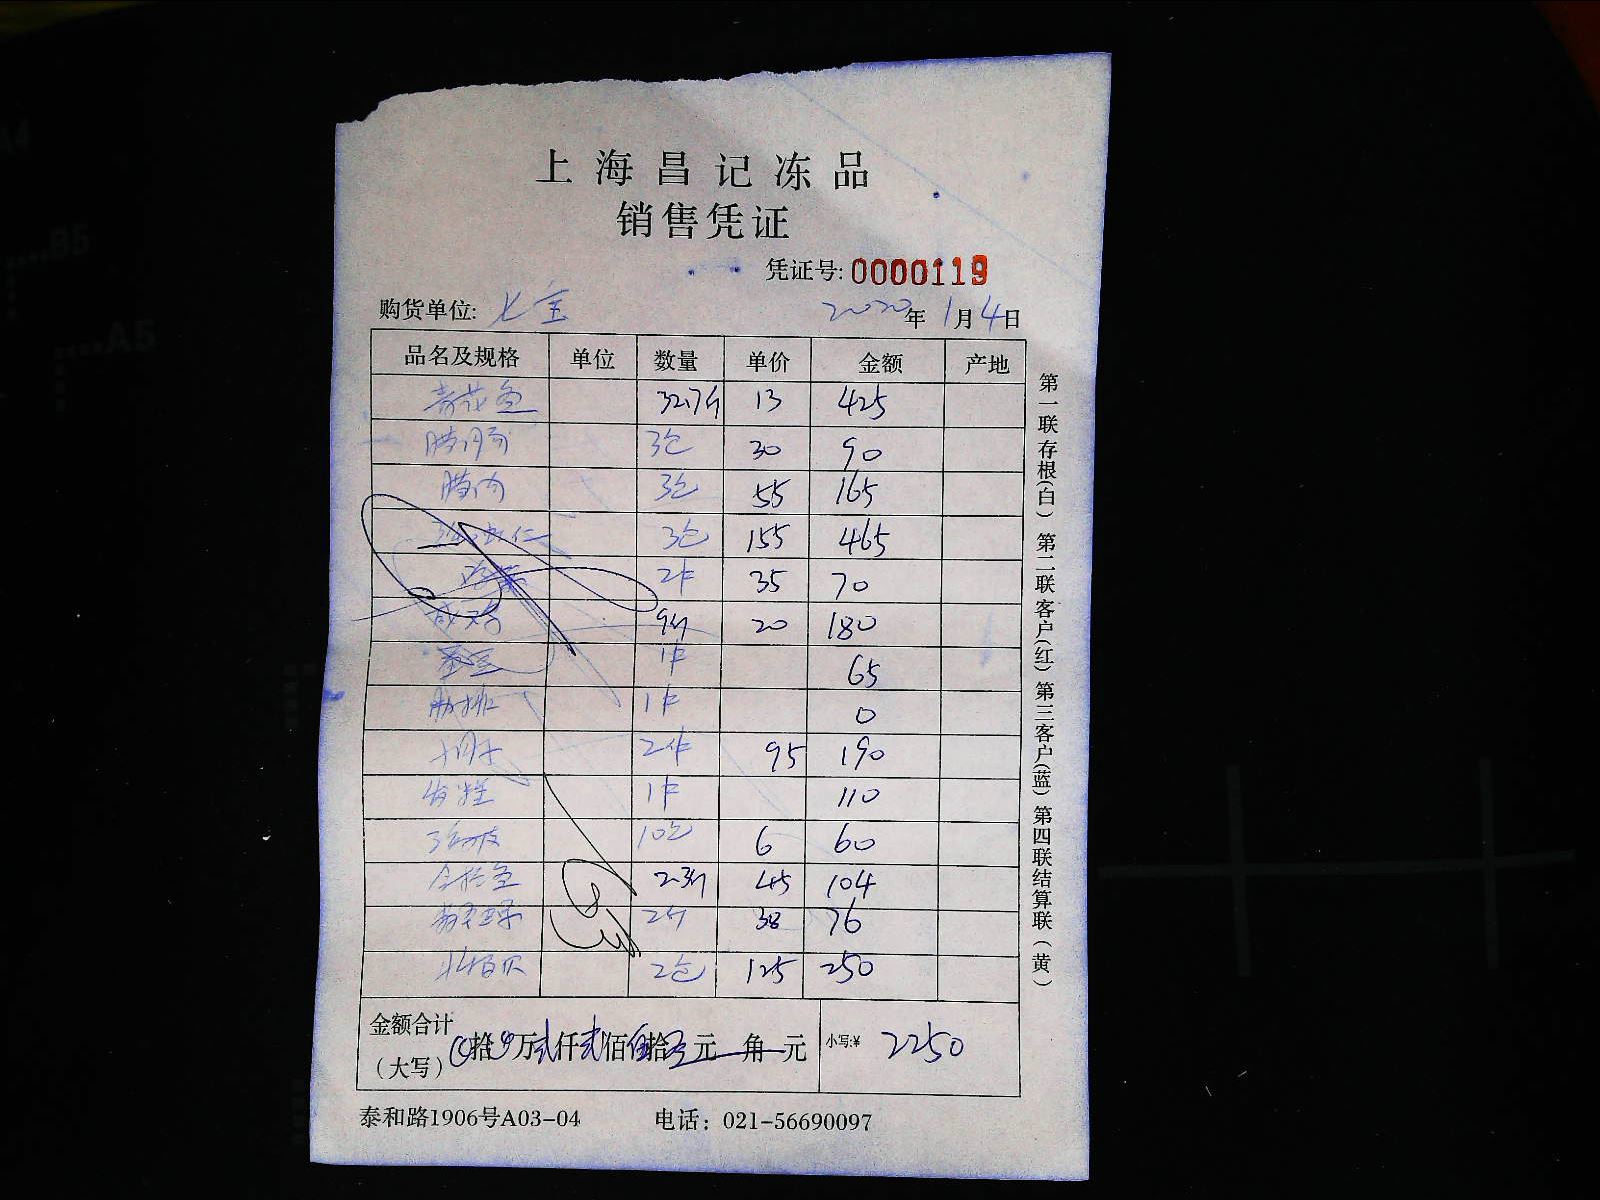 上海昌记冻品
销售凭证
凭证号: 0000119
购货单位: 七宝 2020年1月4日
品名及规格 单位 数量 单价 金额 产地
青花鱼 32.7斤 13 425
3包 30 90
腊肉 3包 55 165
虾仁 3包 155 465
2件 35 70
9斤 20 180
1件 65
肋排 1件 0
2件 95 190
1件 110
10包 6 60
2.3斤 45 104
2斤 38 76
北极贝 2包 125 250
金额合计(大写) 拾 万贰仟贰佰伍拾 元 角 元 小写:¥ 2250
泰和路1906号A03-04 电话: 021-56690097
第一联存根(白) 第二联客户(红) 第三客户(蓝) 第四联结算联(黄)